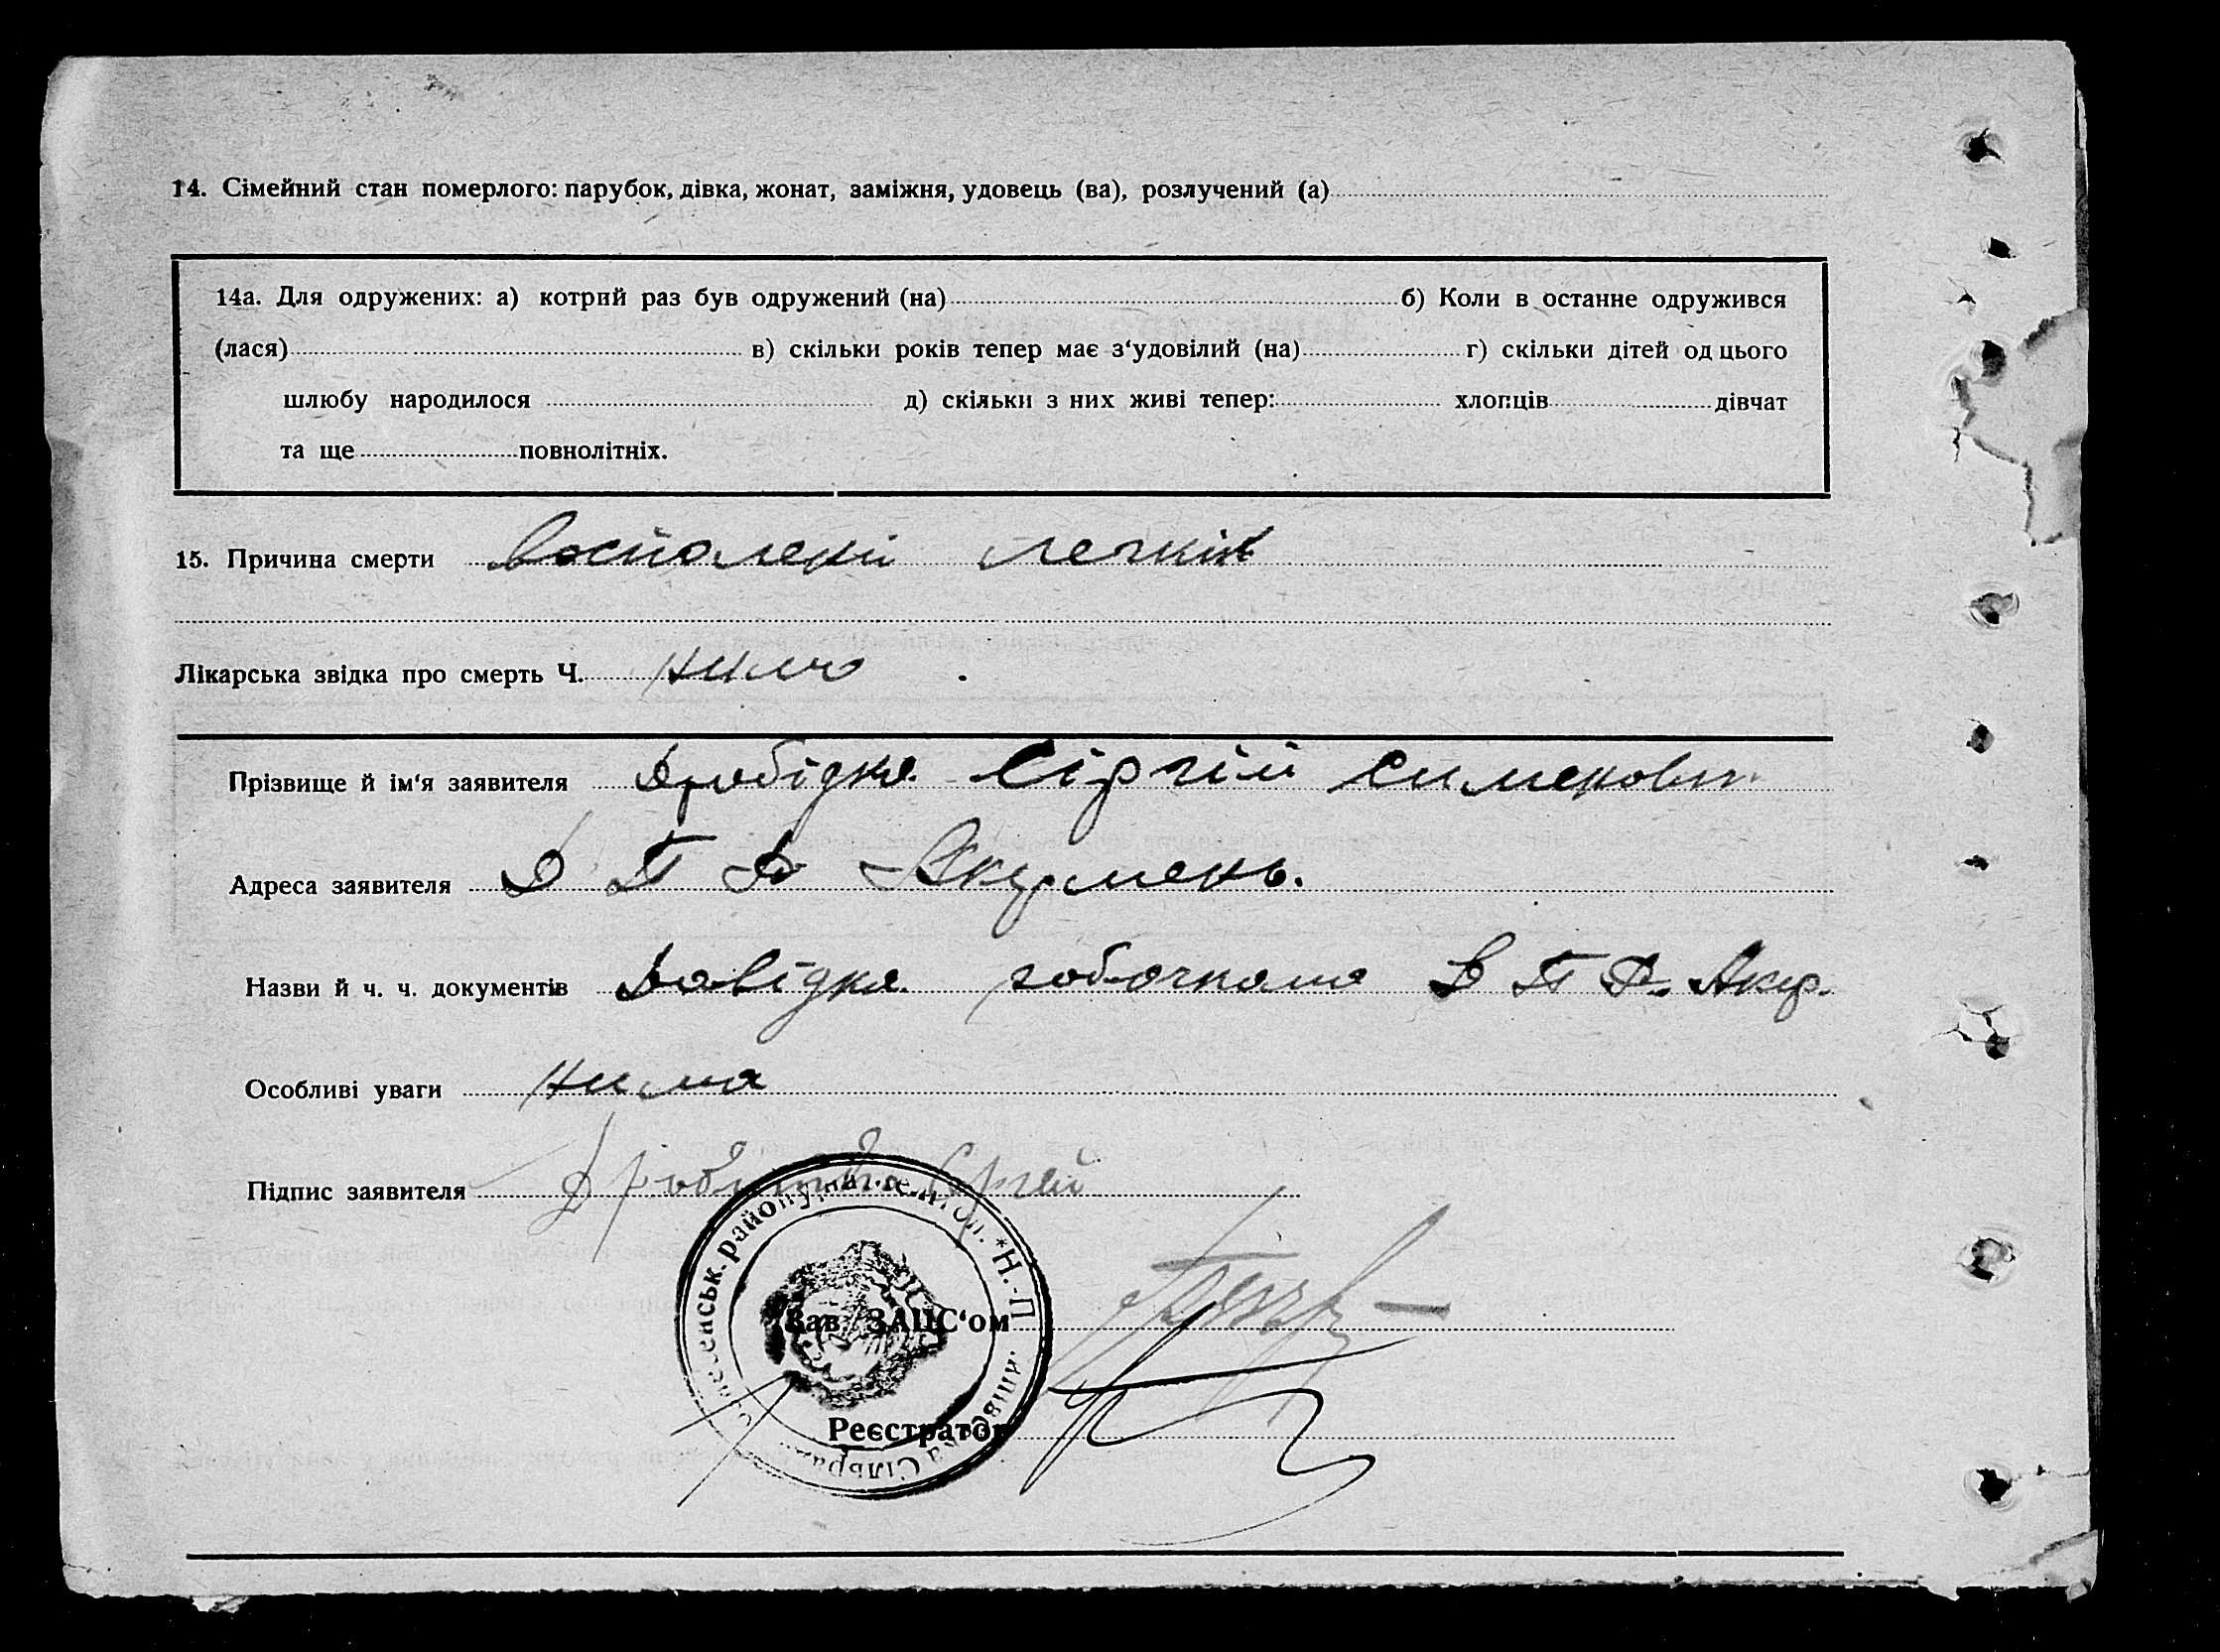 14. Сімейний стан померлого: парубок, дівка, жонат, заміжня, удовець (ва), розлучений (а)
14а. Для одружених: а) котрий раз був одружений (на) б) Коли в останне одружився
(лася) в) скільки років тепер має з‘удовілий (на) г) скільки дітей од цього
шлюбу народилося д) скільки з них живі тепер: хлопців дівчат
та ще повнолітніх.
15. Причина смерти Воспалені легких
Лікарська звідка про смерть Ч. нима
Прізвище й ім‘я заявителя Сіргій Сименович
Адреса заявителя Д П Д Акурмень.
Назви й ч. ч. документів Довідка Акур.
Особливі уваги нима
Підпис заявителя
Зав ЗАЦС‘ом
Реєстратор